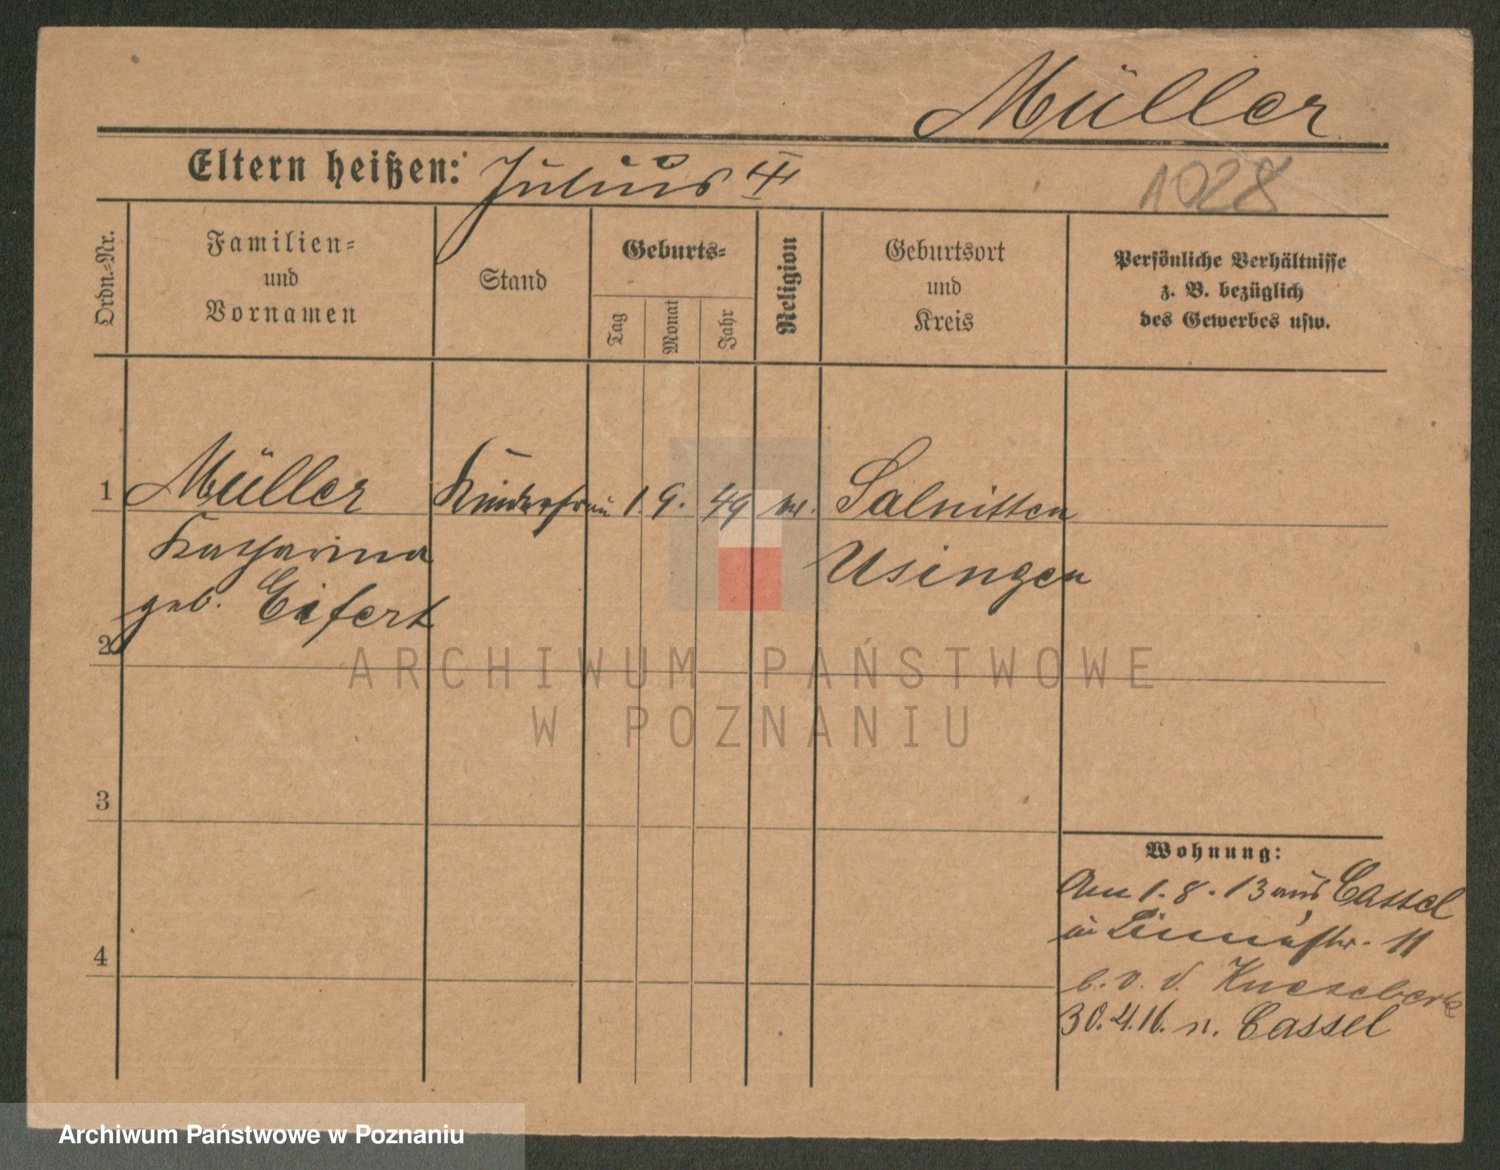 Müller
Eltern heißen: Julius
1028
Ordn.-Nr.
Familien-
und
Vornamen
Stand
Geburts-
Tag
Monat
Jahr
Religion
Geburtsort
und
Kreis
Persönliche Verhältnisse
z. B. bezüglich
des Gewerbes usw.
1 Müller Kinderfrau 1. 9. 49 Salnitten
Katharina Usingen
geb. Eifert
2
3
4
Wohnung:
Am 1. 8. 13 aus Cassel
in Linnéstr. 11
b. v. d. Knesebeck
30. 4. 16. n. Cassel
ARCHIWUM PAŃSTWOWE
W POZNANIU
Archiwum Państwowe w Poznaniu